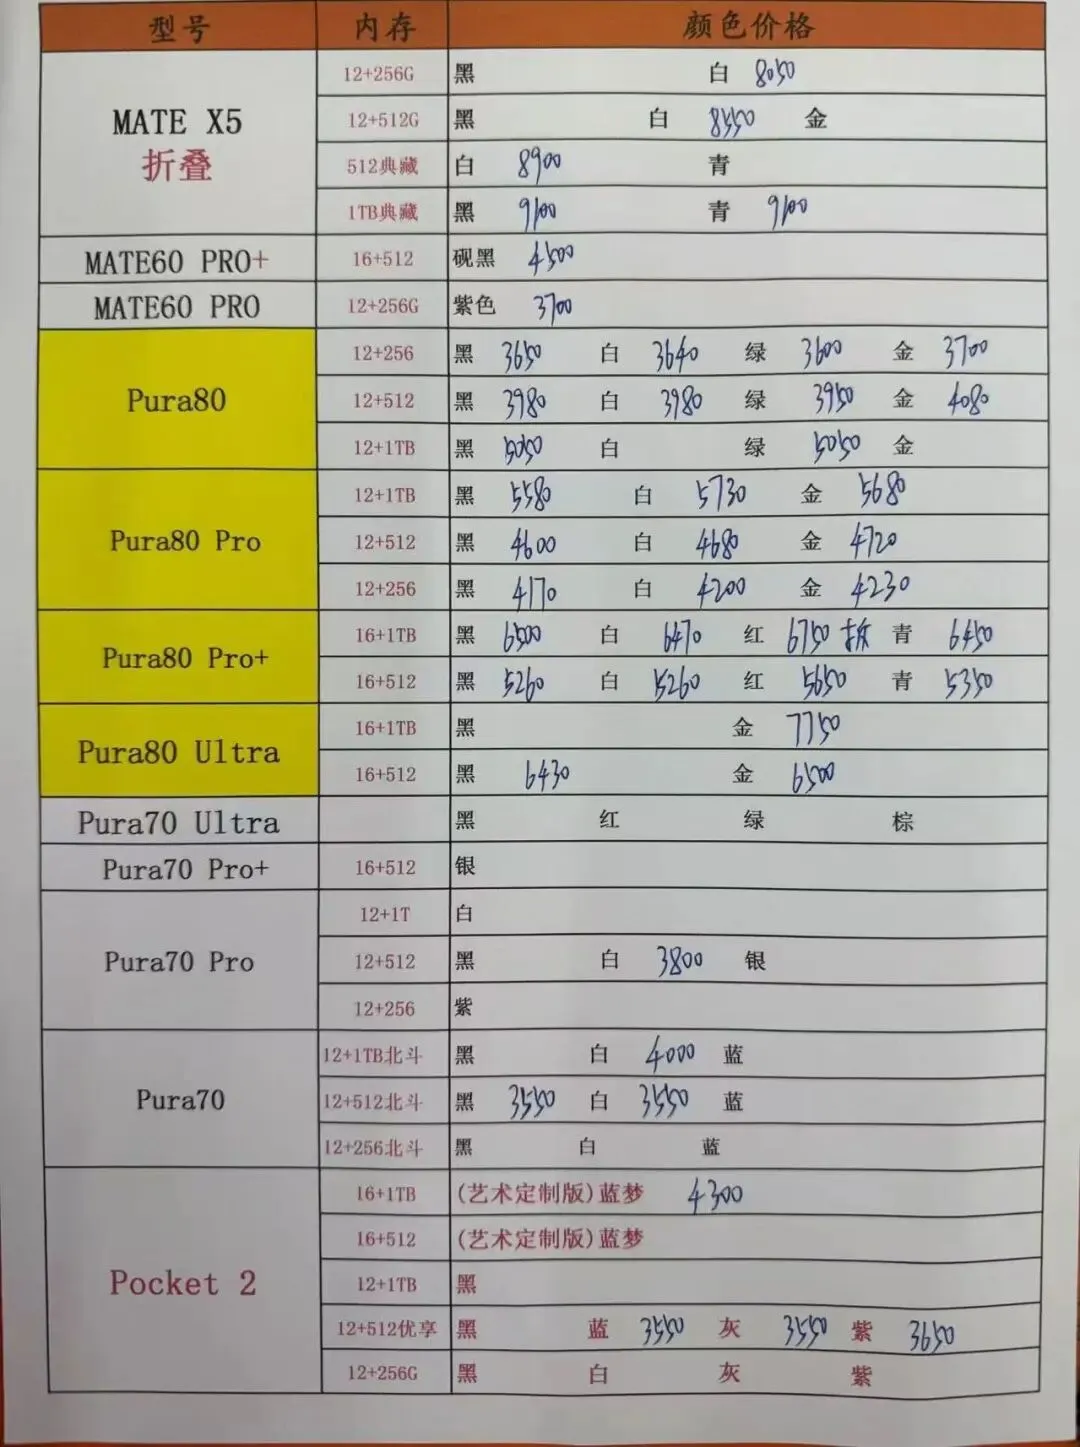 型号 内存 颜色价格
MATE X5
折叠
12+256G 黑 白 8050
12+512G 黑 白 8550 金
512典藏 白 8900 青
1TB典藏 黑 9100 青 9100
MATE60 PRO+ 16+512 砚黑 4500
MATE60 PRO 12+256G 紫色 3700
Pura80
12+256 黑 3650 白 3640 绿 3600 金 3700
12+512 黑 3980 白 3980 绿 3950 金 4080
12+1TB 黑 5050 白 绿 5050 金
Pura80 Pro
12+1TB 黑 5580 白 5730 金 5680
12+512 黑 4600 白 4680 金 4720
12+256 黑 4170 白 4200 金 4230
Pura80 Pro+
16+1TB 黑 6500 白 6470 红 6750 拆 青 6450
16+512 黑 5260 白 5260 红 5650 青 5350
Pura80 Ultra
16+1TB 黑 金 7750
16+512 黑 6430 金 6500
Pura70 Ultra 黑 红 绿 棕
Pura70 Pro+ 16+512 银
Pura70 Pro
12+1T 白
12+512 黑 白 3800 银
12+256 紫
Pura70
12+1TB北斗 黑 白 4000 蓝
12+512北斗 黑 3550 白 3550 蓝
12+256北斗 黑 白 蓝
Pocket 2
16+1TB (艺术定制版)蓝梦 4300
16+512 (艺术定制版)蓝梦
12+1TB 黑
12+512优享 黑 蓝 3550 灰 3550 紫 3650
12+256G 黑 白 灰 紫